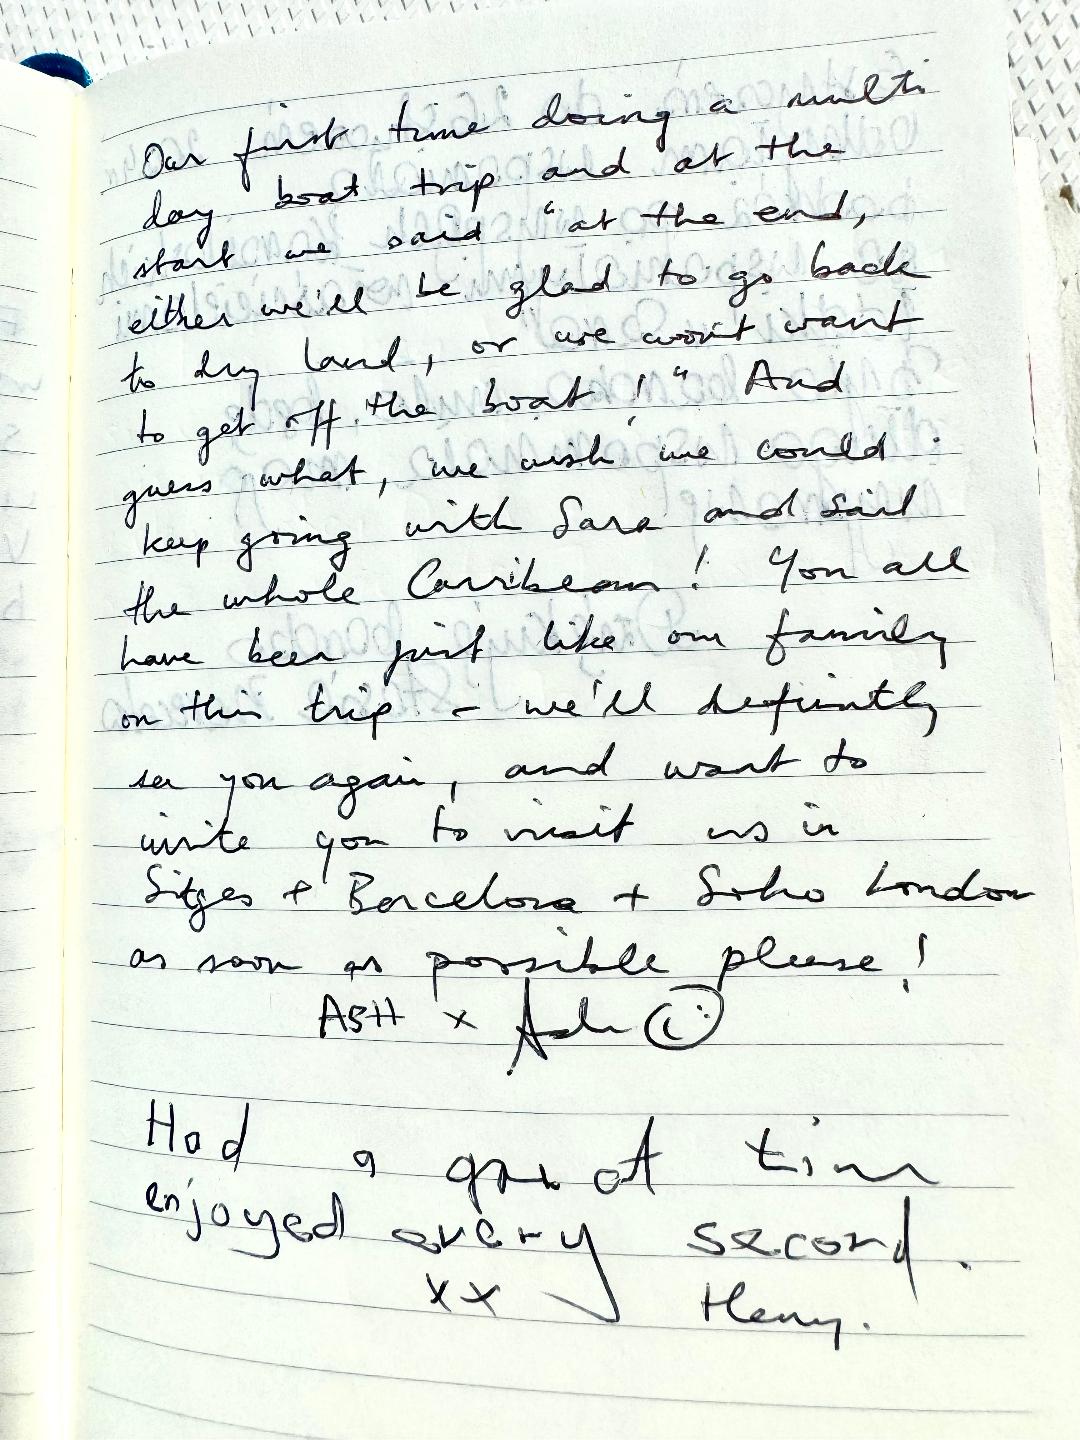 Our first time doing a multi
day boat trip and at the
start we said "at the end,
either we'll be glad to go back
to dry land, or we won't want
to get off the boat!" And
guess what, we wish we could
keep going with Sara and Sail
the whole Carribean! You all
have been just like our family
on this trip - we'll defintly
see you again, and want to
invite you to visit us in
Sitges + Barcelona + Soho London
as soon as possible please!
ASH x Ash
Had a great time
enjoyed every second.
xx Henry.